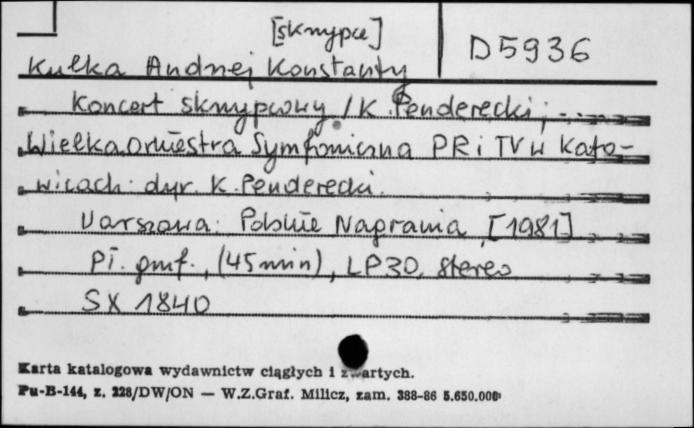 [skrzypce]
D5936
Kulka Andrzej Konstanty
Koncert skrzypcowy / K. Penderecki; ...
Wielka Orkiestra Symfoniczna PR i TV w Kato-
wicach: dyr. K. Penderecki.
Warszawa: Polskie Nagrania, [1981]
Pł. gmf., (45 min), LP30, stereo
SX 1840
Karta katalogowa wydawnictw ciągłych i zwartych.
Pu-B-144, z. 228/DW/ON — W.Z.Graf. Milicz, zam. 388-86 5.650.000